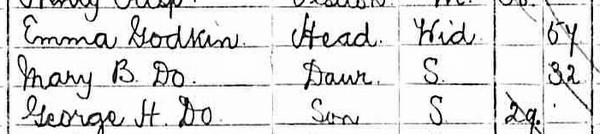 Emma Godkin Head Wid 57
Mary B. Do. Daur. S. 32
George H. Do Son S 29.